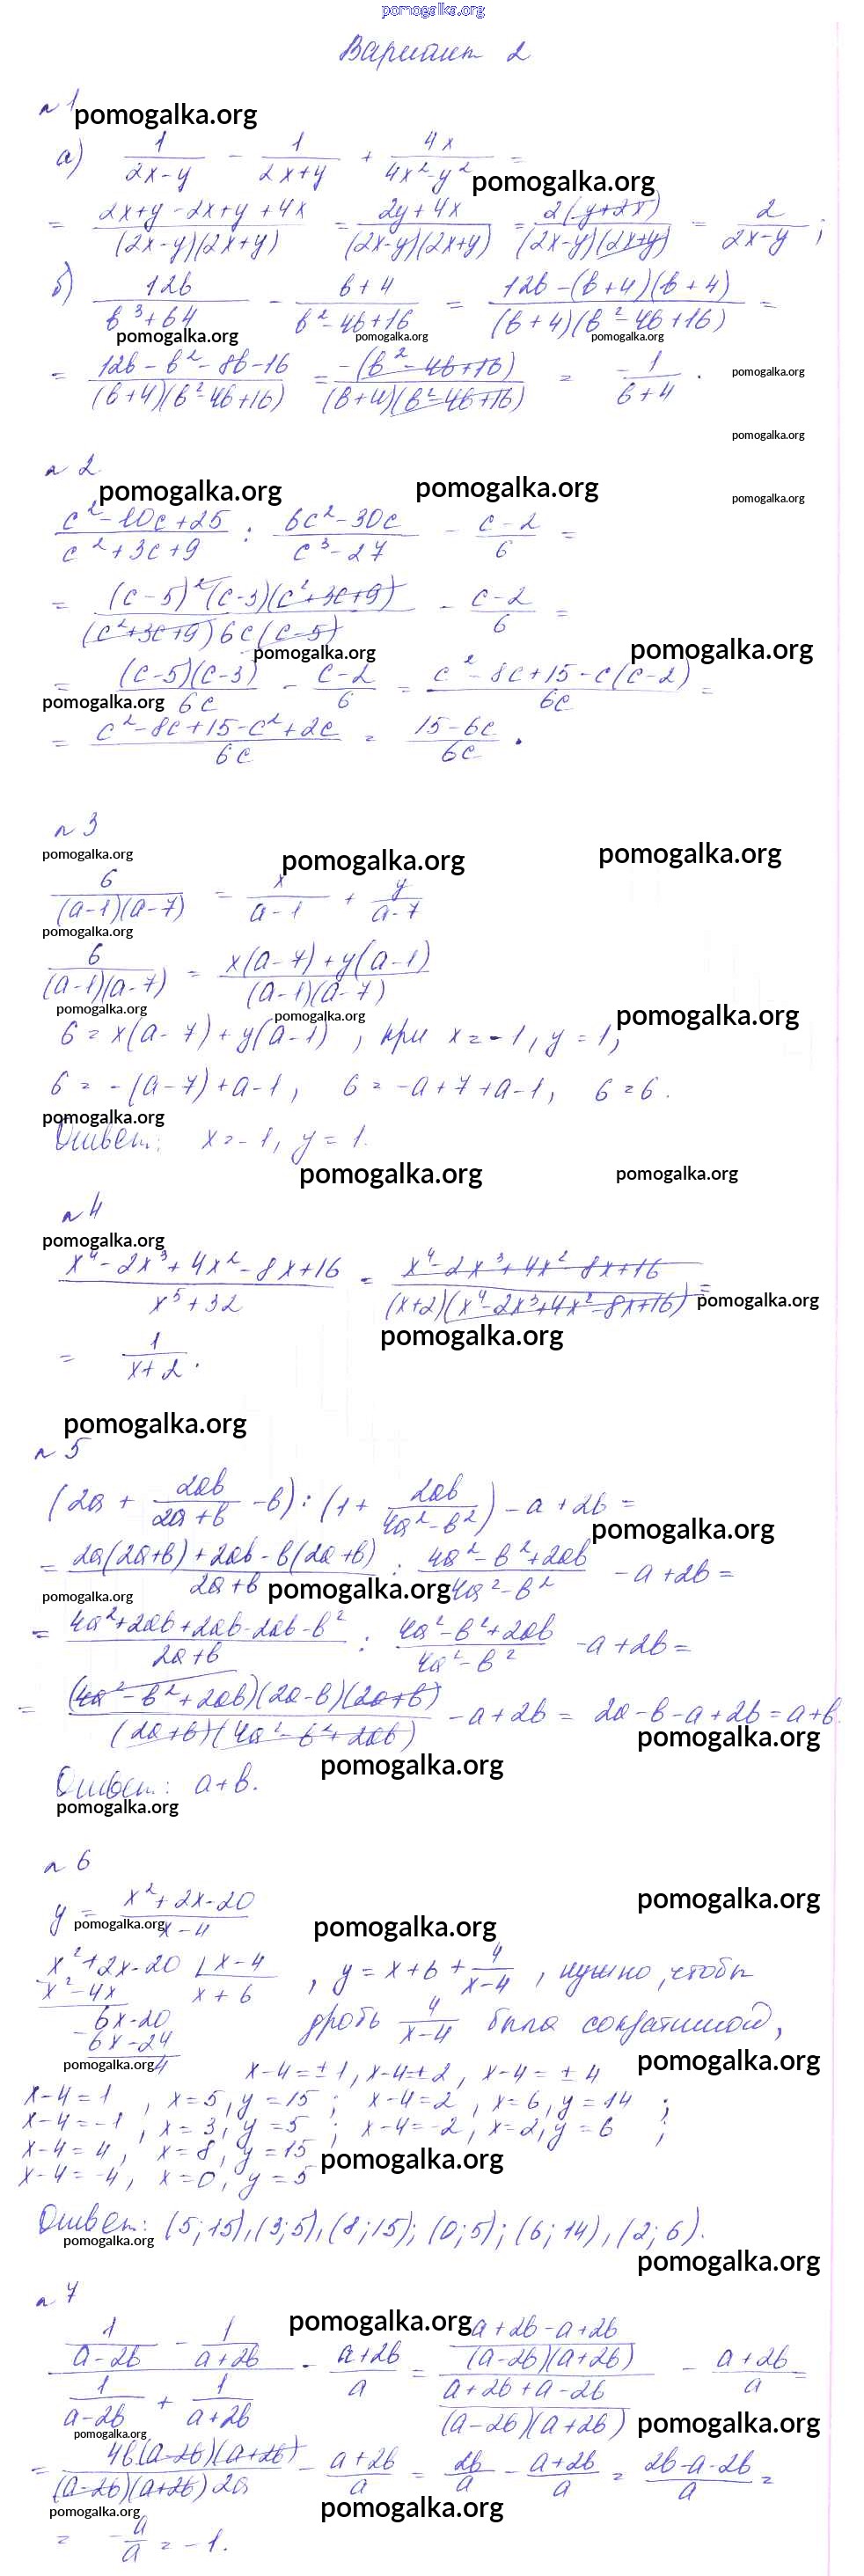 pomogalka.org
Вариант 2
№ 1 pomogalka.org
а) 1/(2x-y) - 1/(2x+y) + 4x/(4x²-y²) = pomogalka.org
= (2x+y-2x+y+4x)/((2x-y)(2x+y)) = (2y+4x)/((2x-y)(2x+y)) = 2(y+2x)/((2x-y)(2x+y)) = 2/(2x-y) ;
б) 12b/(b³+64) - (b+4)/(b²-4b+16) = (12b-(b+4)(b+4))/((b+4)(b²-4b+16)) =
pomogalka.org pomogalka.org pomogalka.org
= (12b-b²-8b-16)/((b+4)(b²-4b+16)) = -(b²-4b+16)/((b+4)(b²-4b+16)) = -1/(b+4) . pomogalka.org
pomogalka.org
№ 2
pomogalka.org pomogalka.org pomogalka.org
(c²-10c+25)/(c²+3c+9) : (6c²-30c)/(c³-27) - (c-2)/6 =
= (c-5)²(c-3)(c²+3c+9)/((c²+3c+9)6c(c-5)) - (c-2)/6 =
pomogalka.org pomogalka.org
= (c-5)(c-3)/6c - (c-2)/6 = (c²-8c+15-c(c-2))/6c =
pomogalka.org
= (c²-8c+15-c²+2c)/6c = (15-6c)/6c .
№ 3
pomogalka.org pomogalka.org pomogalka.org
6/((a-1)(a-7)) = x/(a-1) + y/(a-7)
pomogalka.org
6/((a-1)(a-7)) = (x(a-7)+y(a-1))/((a-1)(a-7))
pomogalka.org pomogalka.org pomogalka.org
6 = x(a-7)+y(a-1) , при x=-1, y=1,
6 = -(a-7)+a-1, 6 = -a+7+a-1, 6=6.
pomogalka.org
Ответ: x=-1, y=1.
pomogalka.org pomogalka.org
№ 4
pomogalka.org
(x⁴-2x³+4x²-8x+16)/(x⁵+32) = (x⁴-2x³+4x²-8x+16)/((x+2)(x⁴-2x³+4x²-8x+16)) = pomogalka.org
pomogalka.org
= 1/(x+2) .
pomogalka.org
№ 5
(2a + 2ab/(2a+b) - b) : (1 + 2ab/(4a²-b²)) - a + 2b =
pomogalka.org
= (2a(2a+b)+2ab-b(2a+b))/(2a+b) : (4a²-b²+2ab)/(4a²-b²) - a + 2b =
pomogalka.org pomogalka.org
= (4a²+2ab+2ab-2ab-b²)/(2a+b) : (4a²-b²+2ab)/(4a²-b²) - a + 2b =
= (4a²-b²+2ab)(2a-b)(2a+b)/((2a+b)(4a²-b²+2ab)) - a + 2b = 2a-b-a+2b = a+b.
pomogalka.org
pomogalka.org
Ответ: a+b.
pomogalka.org
№ 6
pomogalka.org
y = (x²+2x-20)/(x-4)
pomogalka.org pomogalka.org
x²+2x-20 | x-4
x²-4x x+6 , y = x+6 + 4/(x-4) , нужно, чтобы
6x-20
6x-24 дробь 4/(x-4) была сократимой,
4
pomogalka.org pomogalka.org
x-4=±1, x-4=±2, x-4=±4
x-4=1 , x=5, y=15 ; x-4=2 , x=6, y=14 ;
x-4=-1 , x=3, y=5 ; x-4=-2, x=2, y=6 ;
x-4=4, x=8, y=15
pomogalka.org
x-4=-4, x=0, y=5
Ответ: (5;15), (3;5), (8;15); (0;5); (6;14), (2;6).
pomogalka.org pomogalka.org
№ 7
pomogalka.org
(1/(a-2b) - 1/(a+2b))/(1/(a-2b) + 1/(a+2b)) - (a+2b)/a = ((a+2b-a+2b)/((a-2b)(a+2b)))/((a+2b+a-2b)/((a-2b)(a+2b))) - (a+2b)/a =
pomogalka.org pomogalka.org
= 4b(a-2b)(a+2b)/((a-2b)(a+2b)2a) - (a+2b)/a = 2b/a - (a+2b)/a = (2b-a-2b)/a =
pomogalka.org pomogalka.org
= -a/a = -1.